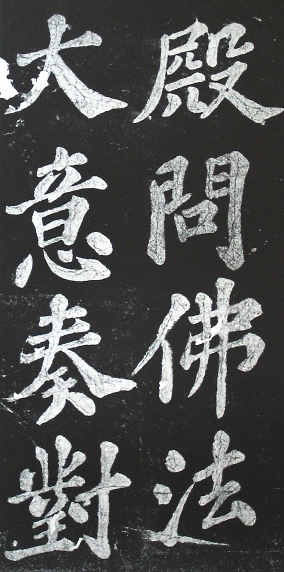 殿問佛法
大意奏對